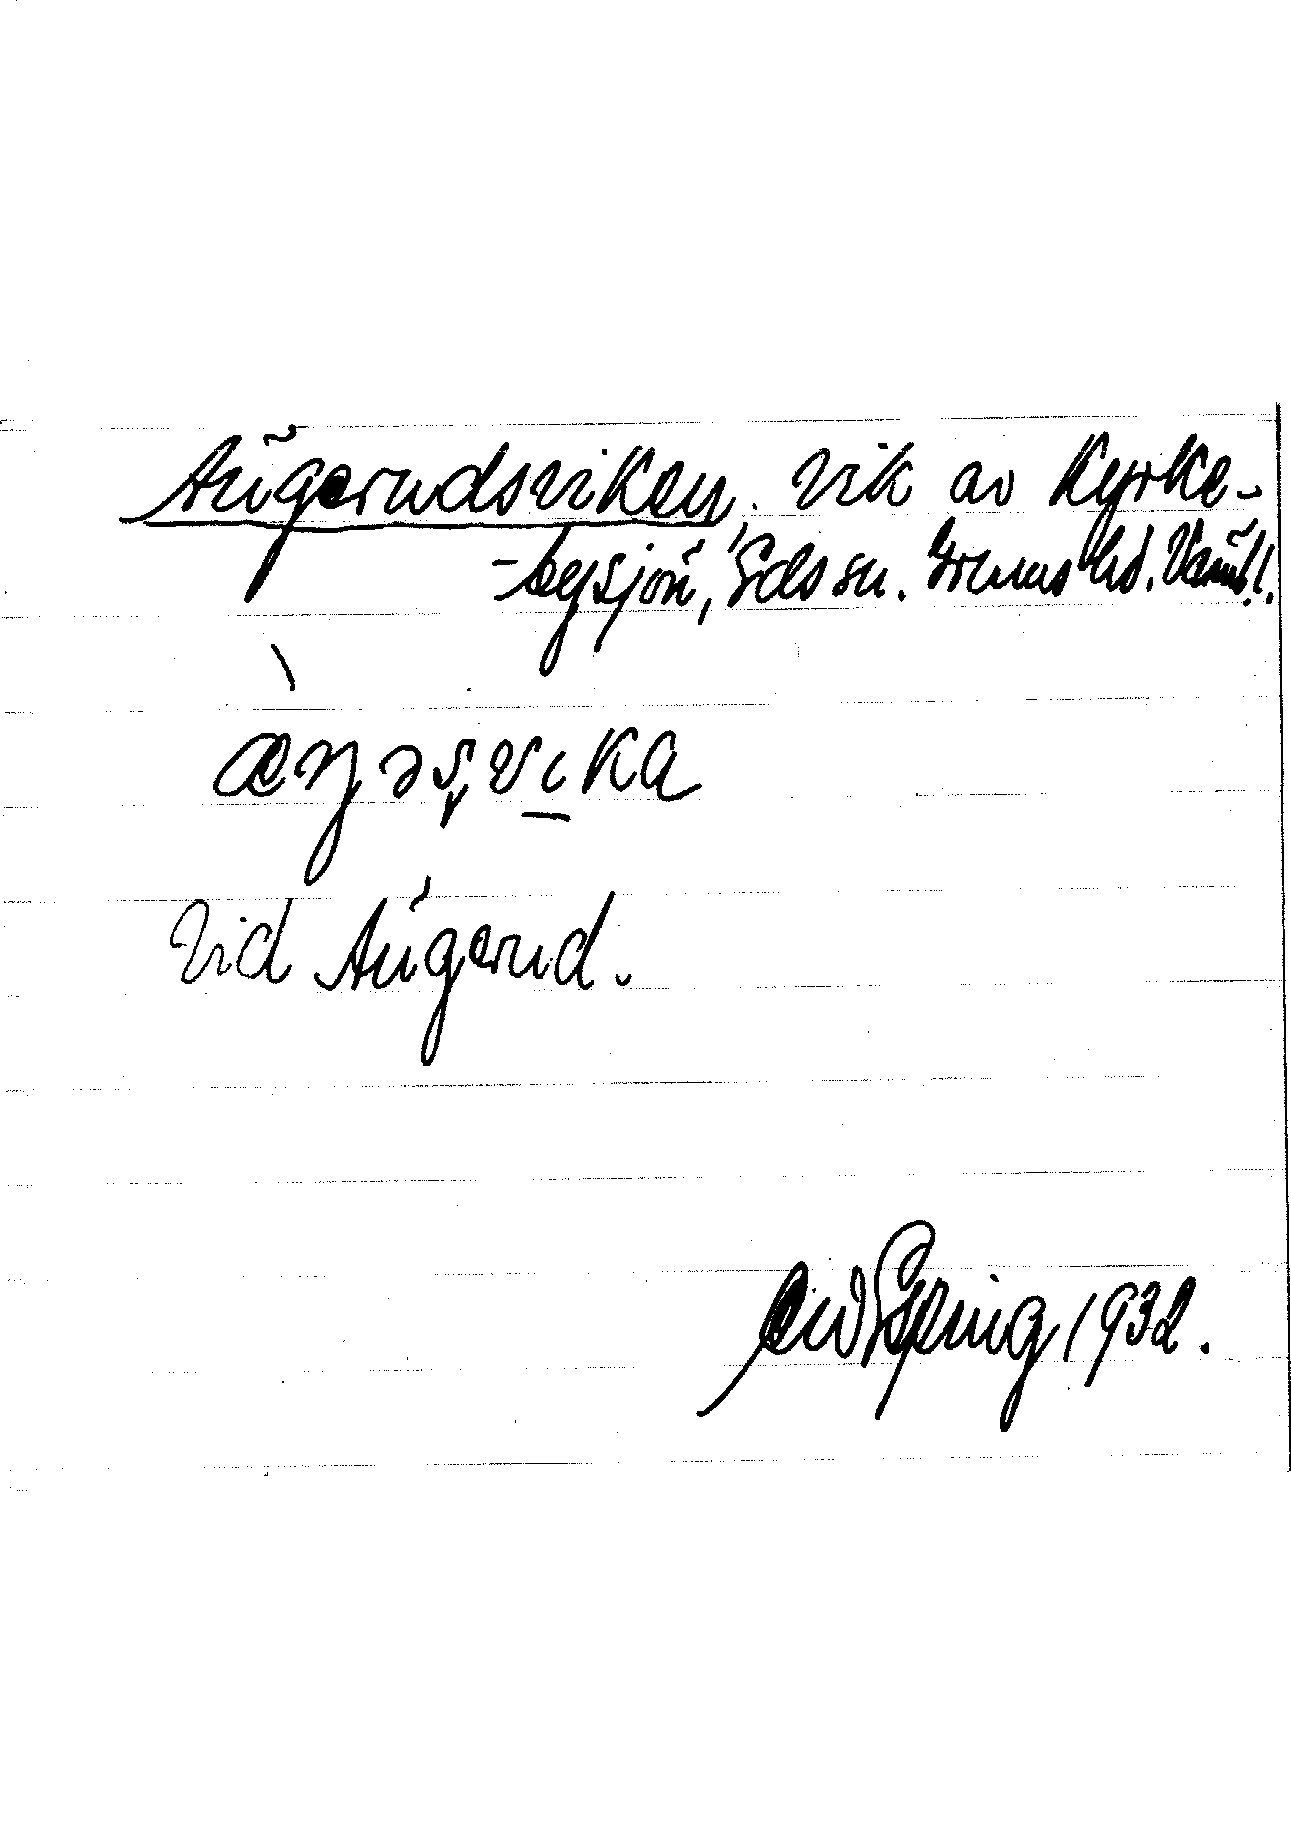 Ängerudsviken, vik av Kyrke-
-bysjön, Eds sn. Grums hd. Värml.
æŋəʂvɩ̱ka
Vid Ängerud.
1932.